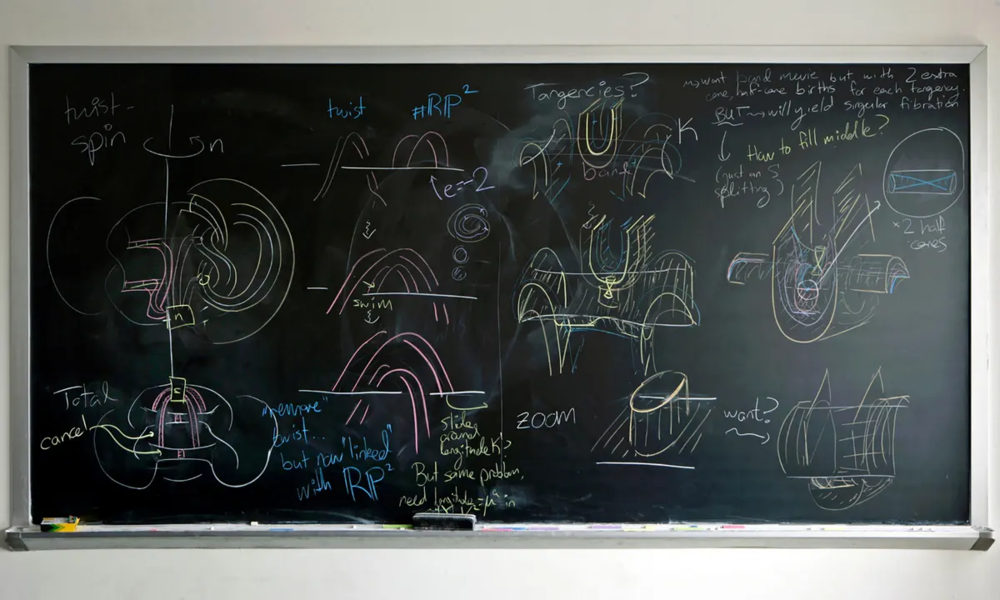 twist-
spin
n
n
Total
cancel
twist #RP²
e=-2
swim
"remove"
twist...
but now "linked"
with RP²
slide
around
longitude K?
But same problem,
need longitude = μ in
Tangencies?
K
band
zoom
want?
want band movie but with 2 extra
cone, half-cone births for each tangency.
BUT → will yield singular fibration
How to fill middle?
(just an S
splitting)
× 2 half
cones